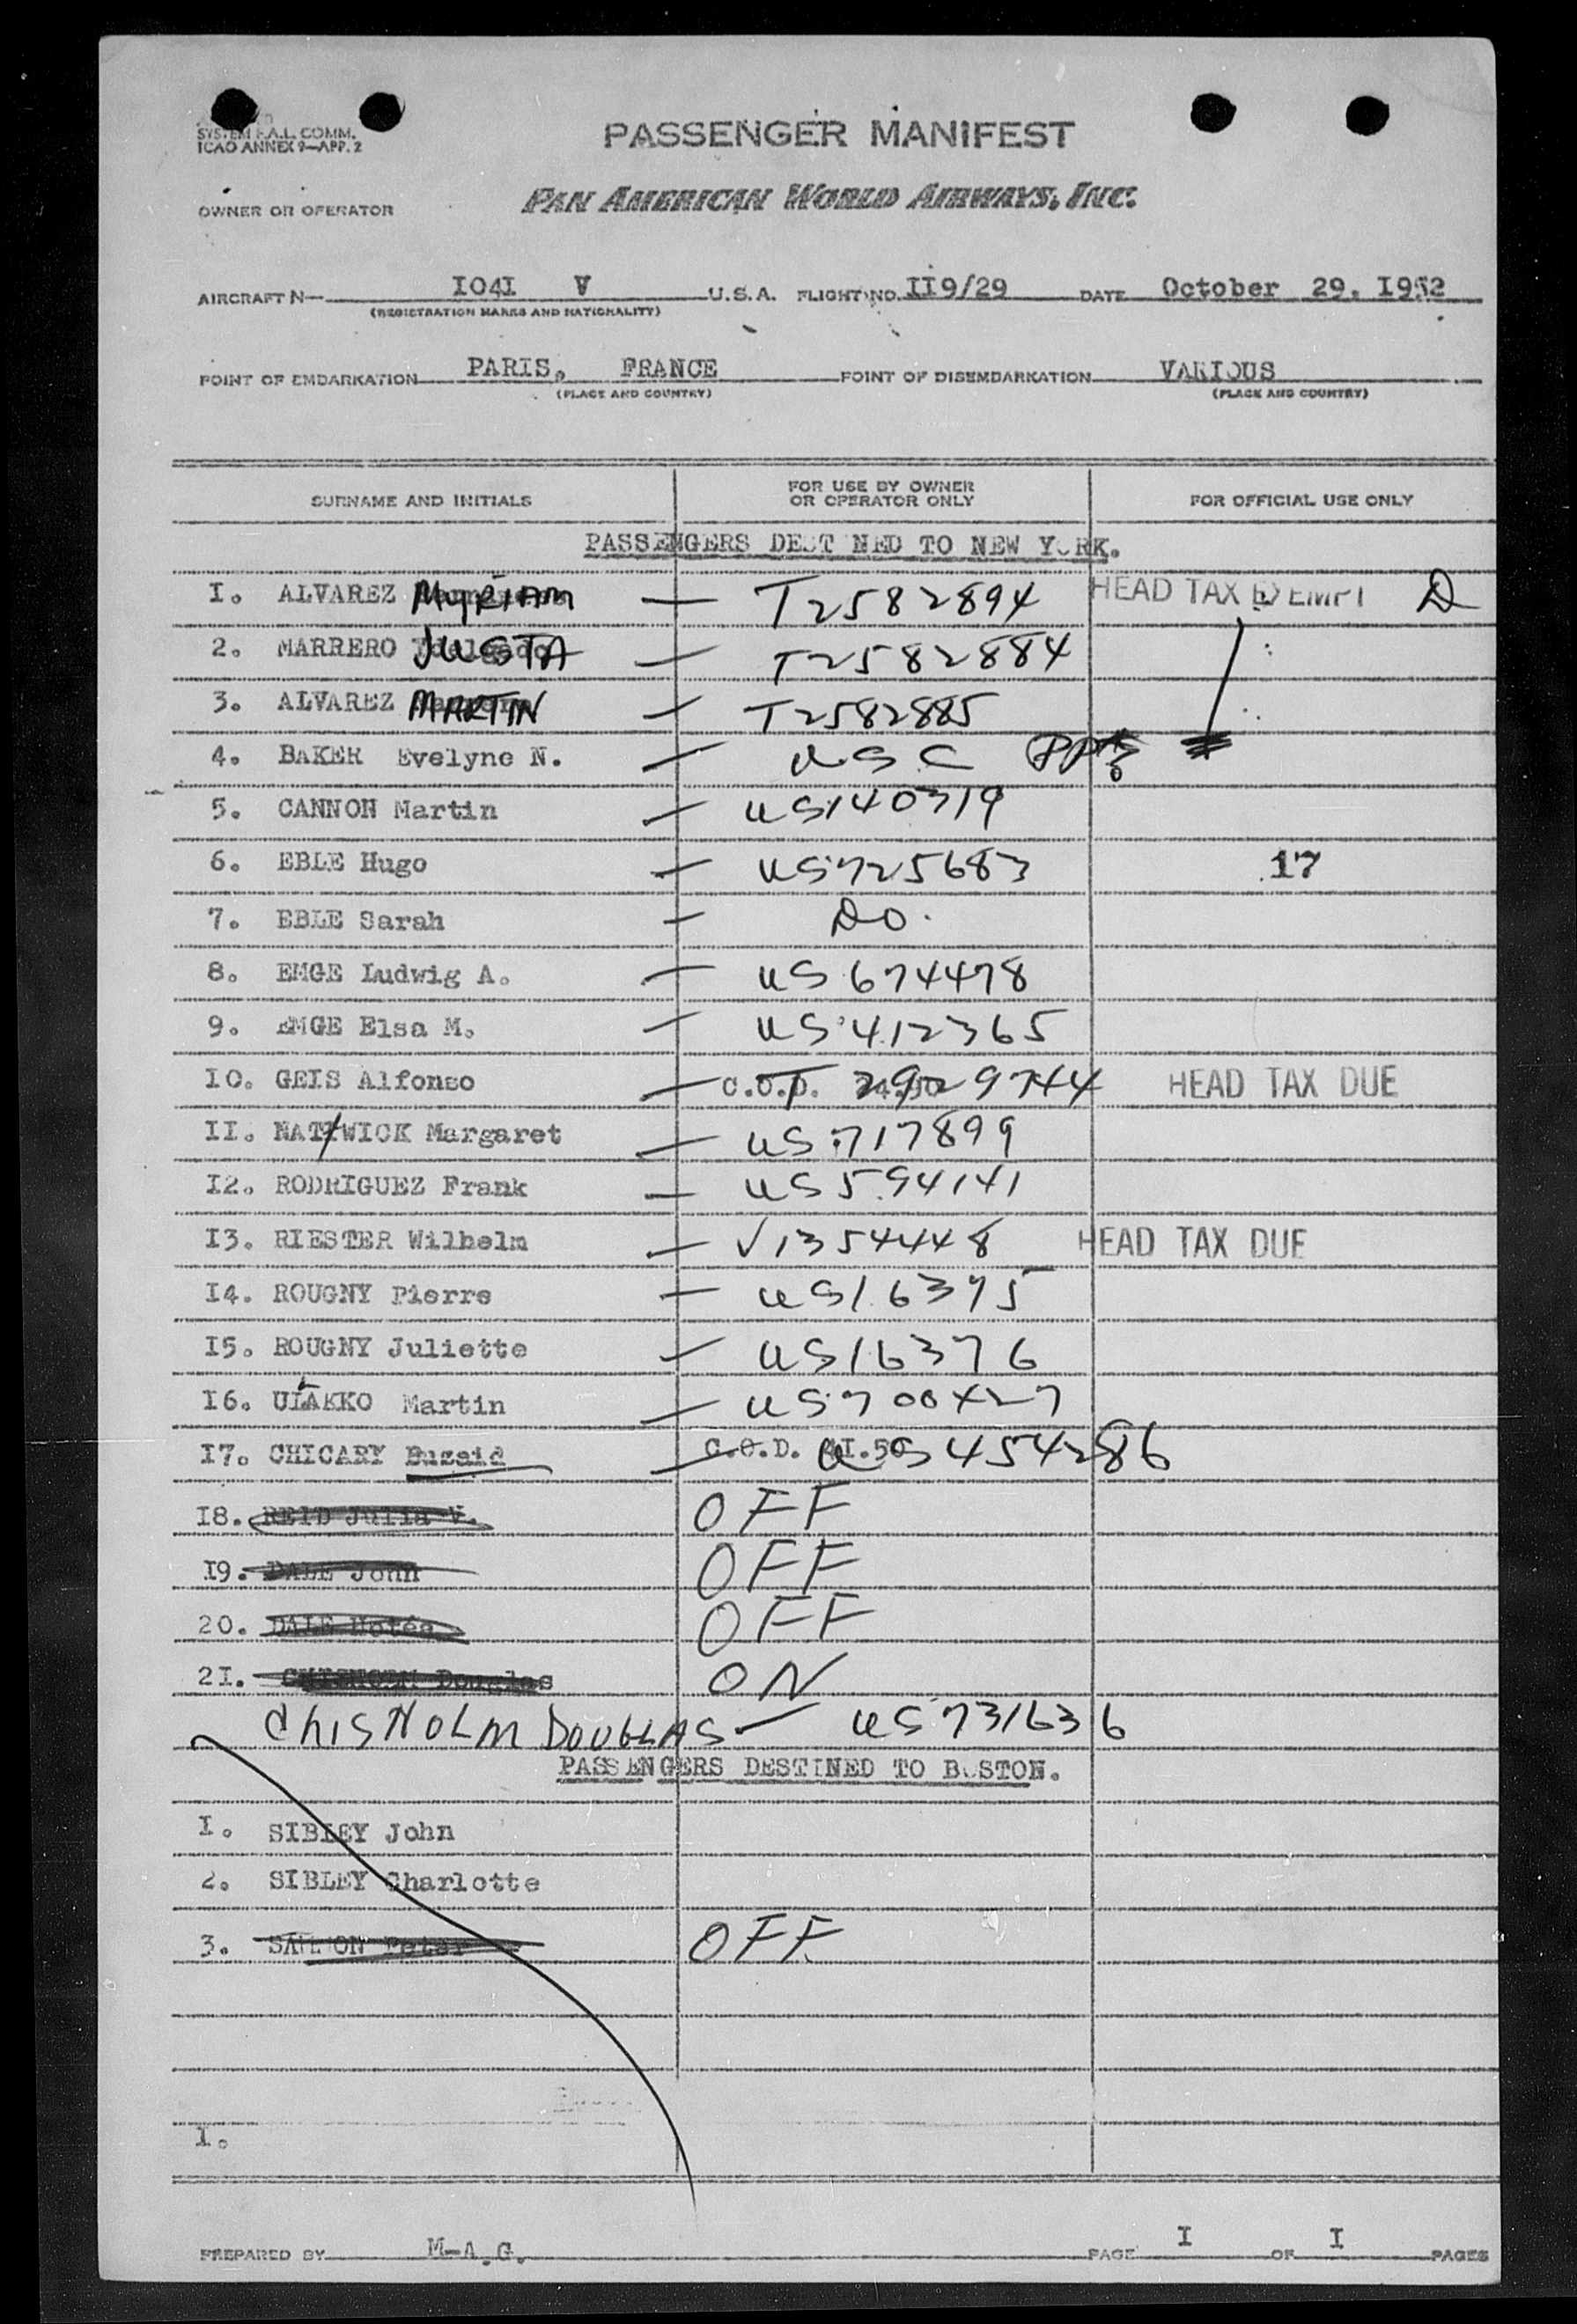 SYSTEM F.A.L. COMM.
ICAO ANNEX 9—APP. 2
PASSENGER MANIFEST
OWNER OR OPERATOR PAN AMERICAN WORLD AIRWAYS, INC.
AIRCRAFT N— I04I V U.S.A. FLIGHT NO. II9/29 DATE October 29. I952
(REGISTRATION MARKS AND NATIONALITY)
POINT OF EMBARKATION PARIS, FRANCE POINT OF DISEMBARKATION VARIOUS
(PLACE AND COUNTRY) (PLACE AND COUNTRY)
SURNAME AND INITIALS FOR USE BY OWNER OR OPERATOR ONLY FOR OFFICIAL USE ONLY
PASSENGERS DESTINED TO NEW YORK.
I. ALVAREZ MYRIAM — T2582894 HEAD TAX EXEMPT D
2. MARRERO JUSTA — T2582884
3. ALVAREZ MARTIN — T2582885
4. BAKER Evelyne N. — USC
5. CANNON Martin — US140319
6. EBLE Hugo — US725683 17
7. EBLE Sarah — DO.
8. EMGE Ludwig A. — US674478
9. EMGE Elsa M. — US412365
I0. GEIS Alfonso — C.O.D. T2929744 HEAD TAX DUE
II. NATTWICK Margaret — US717899
I2. RODRIGUEZ Frank — US594141
I3. RIESTER Wilhelm — V1354448 HEAD TAX DUE
I4. ROUGNY Pierre — US16375
I5. ROUGNY Juliette — US16376
I6. ULAKKO Martin — US700427
I7. CHICARY Buzaid — C.O.D. 2I.50 US454286
I8. REID Julia V. OFF
I9. DALE John OFF
20. DALE OFF
2I. CHISHOLM Douglas ON
CHISHOLM DOUGLAS — US731636
PASSENGERS DESTINED TO BOSTON.
I. SIBLEY John
2. SIBLEY Charlotte
3. SALMON Peter OFF
I.
PREPARED BY M-A.G. PAGE I OF I PAGES